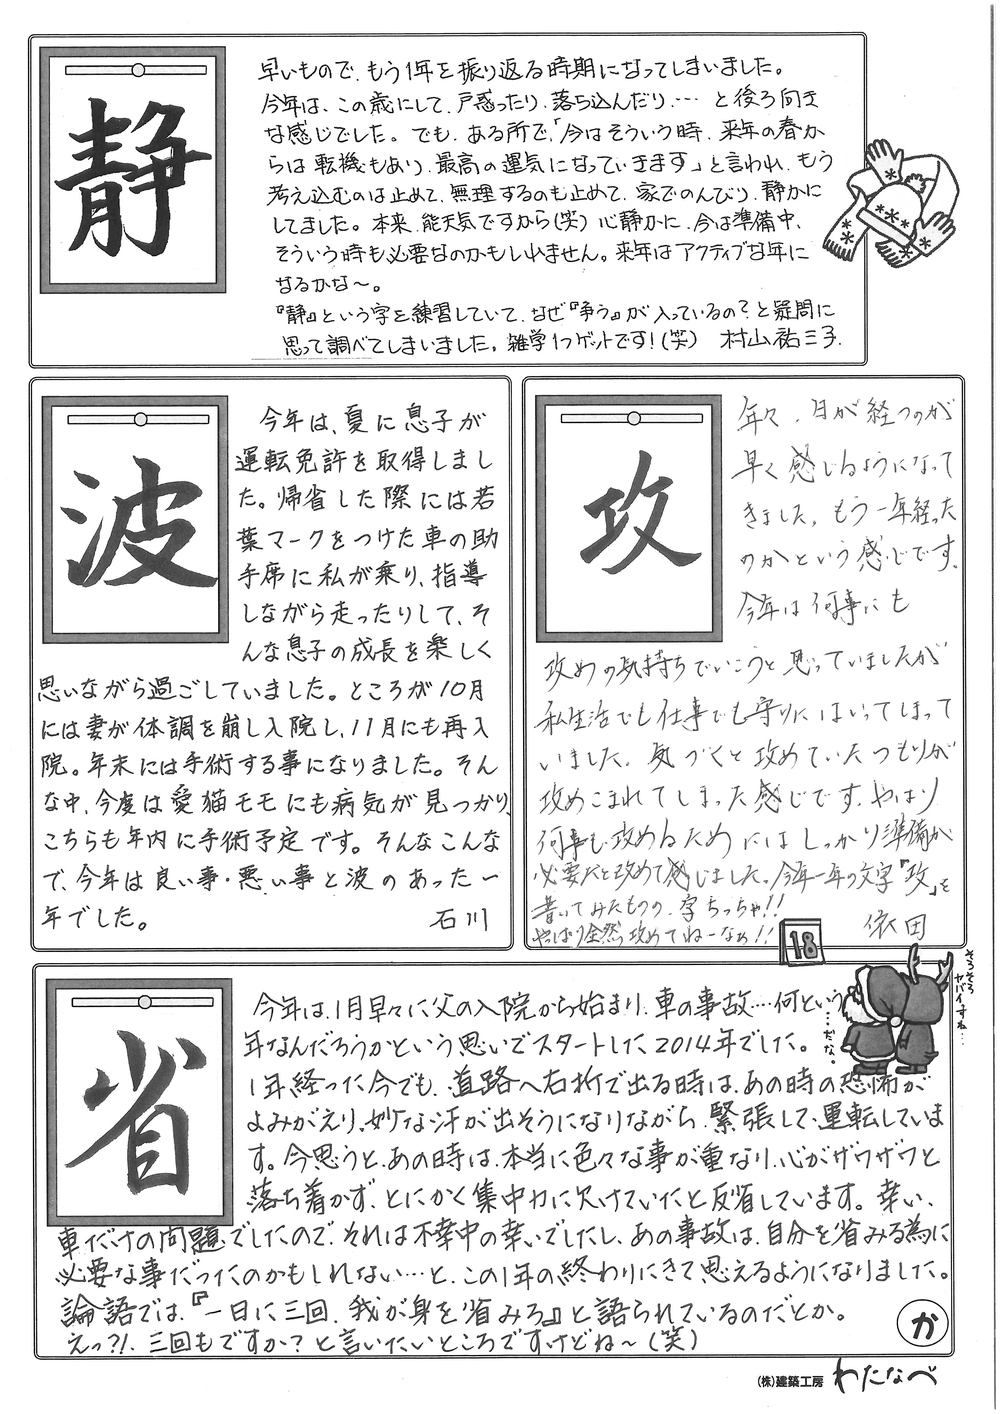 静
早いもので、もう1年を振り返る時期になってしまいました。
今年は、この歳にして、戸惑ったり、落ち込んだり…と後ろ向き
な感じでした。でも、ある所で、「今はそういう時、来年の春か
らは転機もあり、最高の運気になっていきます」と言われ、もう
考え込むのは止めて、無理するのも止めて、家でのんびり、静かに
してました。本来、能天気ですから(笑)心静かに、今は準備中、
そういう時も必要なのかもしれません。来年はアクティブな年に
なるかな〜。
『静』という字を練習していて、なぜ『争う』が入っているの?と疑問に
思って調べてしまいました。雑学1つゲットです!(笑) 村山祐三子
波
今年は、夏に息子が
運転免許を取得しまし
た。帰省した際には若
葉マークをつけた車の助
手席に私が乗り、指導
しながら走ったりして、そ
んな息子の成長を楽しく
思いながら過ごしていました。ところが10月
には妻が体調を崩し入院し、11月にも再入
院。年末には手術する事になりました。そん
な中、今度は愛猫モモにも病気が見つかり、
こちらも年内に手術予定です。そんなこんな
で、今年は良い事・悪い事と波のあった一
年でした。 石川
攻
年々、日が経つのが
早く感じるようになって
きました。もう一年経った
のかという感じです。
今年は何事にも
攻めの気持ちでいこうと思っていましたが
私生活でも仕事でも守りにはいってしまって
いました。気づくと攻めていたつもりが
攻めこまれてしまった感じです。やはり
何事も攻めるためにはしっかり準備が
必要だと改めて感じました。今年一年の文字『攻』を
書いてみたものの、字ちっちゃ!!
やっぱり全然攻めてねーなぁ!! 依田
18
そろそろ
ヤバイっすね…
…だな。
省
今年は、1月早々に父の入院から始まり、車の事故…何という
年なんだろうかという思いでスタートした2014年でした。
1年経った今でも、道路へ右折で出る時は、あの時の恐怖が
よみがえり、妙な汗が出そうになりながら、緊張して、運転していま
す。今思うと、あの時は、本当に色々な事が重なり、心がザワザワと
落ち着かず、とにかく集中力に欠けていたと反省しています。幸い、
車だけの問題でしたので、それは不幸中の幸いでしたし、あの事故は、自分を省みる為に
必要な事だったのかもしれない…と、この1年の終わりにきて思えるようになりました。
論語では、『一日に三回、我が身を省みろ』と語られているのだとか。
えっ?!、三回もですか?と言いたいところですけどね〜(笑)
か
(株)建築工房 わたなべ